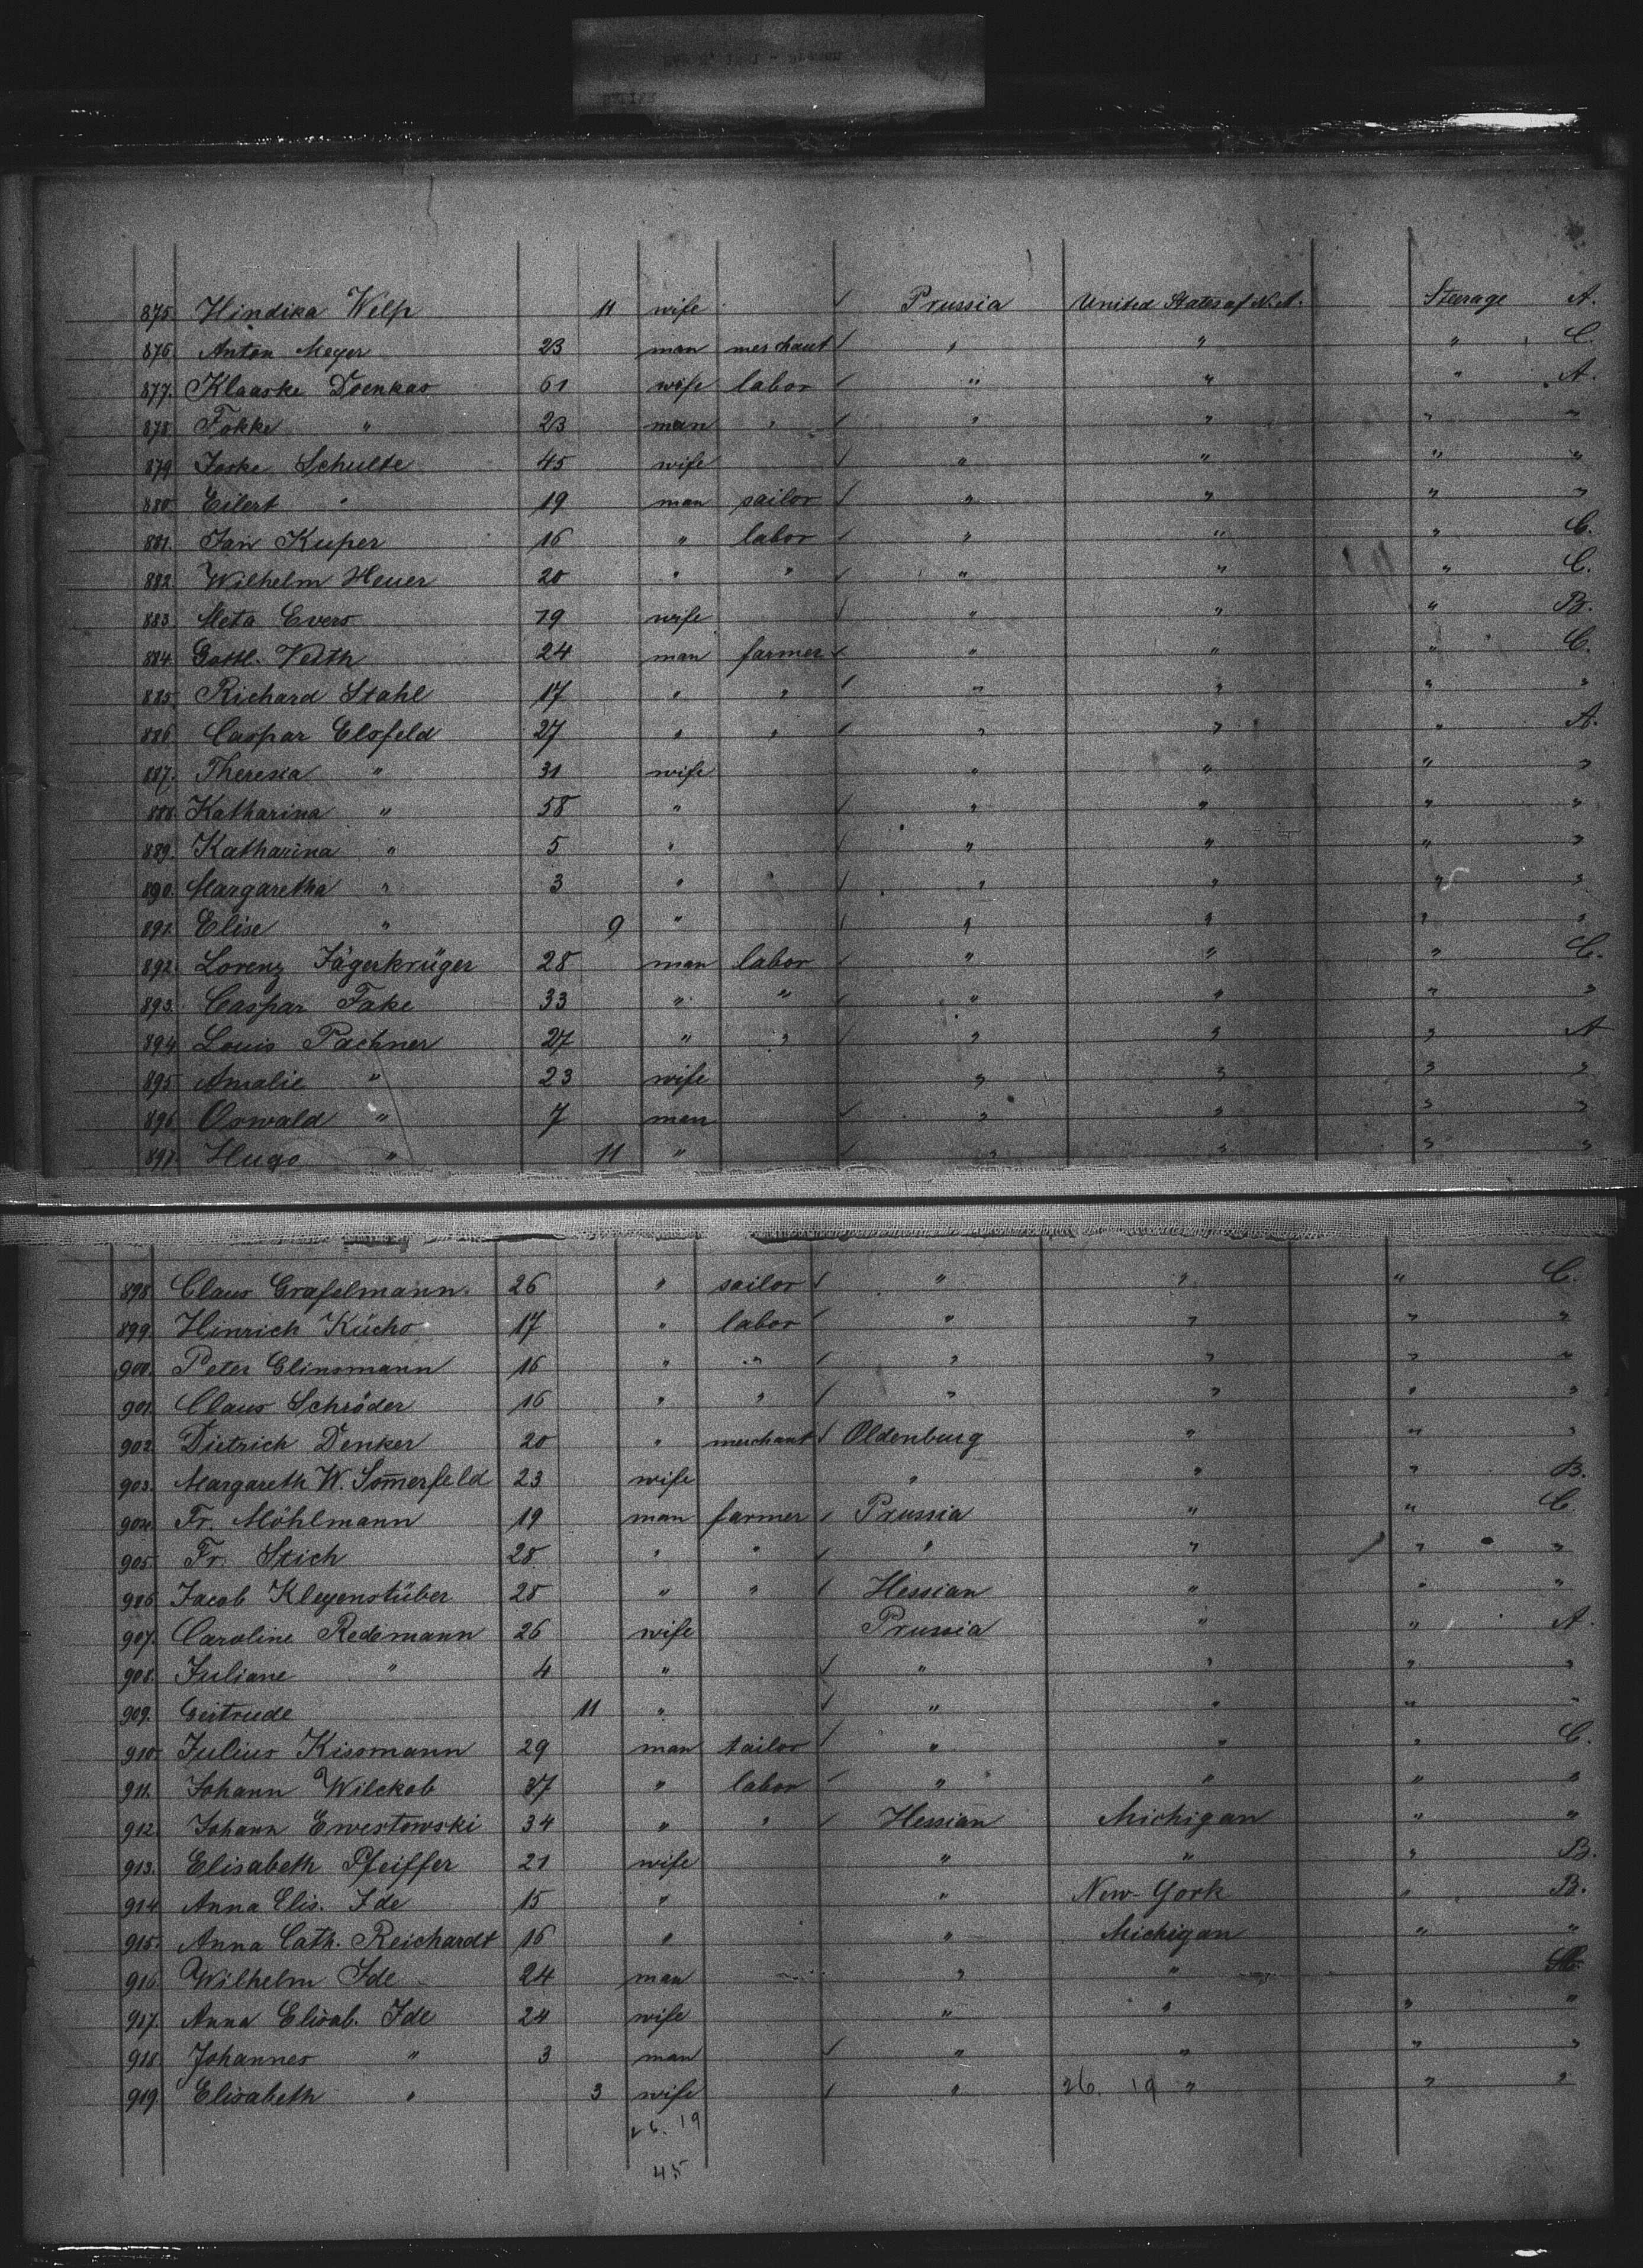 875. Hindika Welp 11 wife Prussia United States of N. A. Steerage A.
876. Anton Meyer 23 man merchant " " " C.
877. Klaaske Doenkas 61 wife labor " " " A.
878. Fokke " 23 man " " " " "
879. Jaske Schulte 45 wife " " " "
880. Eilert " 19 man sailor " " " "
881. Jan Kuper 16 " labor " " " C.
882. Wilhelm Heuer 20 " " " " " C.
883. Meta Evers 19 wife " " " B.
884. Gottl. Veith 24 man farmer " " " C.
885. Richard Stahl 17 " " " " " "
886. Caspar Elsfeld 27 " " " " " A.
887. Theresia " 31 wife " " " "
888. Katharina " 58 " " " " "
889. Katharina " 5 " " " " "
890. Margaretha " 3 " " " " "
891. Elise " 9 " " " " "
892. Lorenz Jägerkrüger 28 man labor " " " C.
893. Caspar Fake 33 " " " " " "
894. Louis Pachner 27 " " " " " A
895. Amalie " 23 wife " " " "
896. Oswald " 7 man " " " "
897. Hugo " 11 " " " " "
898. Claus Grafelmann 26 " sailor " " " C.
899. Hinrich Kücho 17 " labor " " " "
900. Peter Glinsmann 16 " " " " " "
901. Claus Schröder 16 " " " " " "
902. Dietrich Denker 20 " merchant Oldenburg " " "
903. Margareth W. Som̄erfeld 23 wife " " " B.
904. Fr. Möhlmann 19 man farmer Prussia " " C.
905. Fr. Stich 28 " " " " " "
906. Jacob Kleyenstüber 28 " " Hessian " " "
907. Caroline Redemann 26 wife Prussia " " A.
908. Juliane " 4 " " " " "
909. Gertrude 11 " " " " "
910. Julius Kissmann 29 man tailor " " " C.
911. Johann Wilckob 37 " labor " " " "
912. Johann Ewestowski 34 " " Hessian Michigan " "
913. Elisabeth Pfeiffer 21 wife " " " B.
914. Anna Elis. Ide 15 " " New-York " B.
915. Anna Cath. Reichardt 16 " " Michigan " "
916. Wilhelm Ide 24 man " "
917. Anna Elisab. Ide 24 wife " " " "
918. Johannes " 3 man " " " "
919. Elisabeth " 3 wife " 26. 19 " " "
26. 19
45